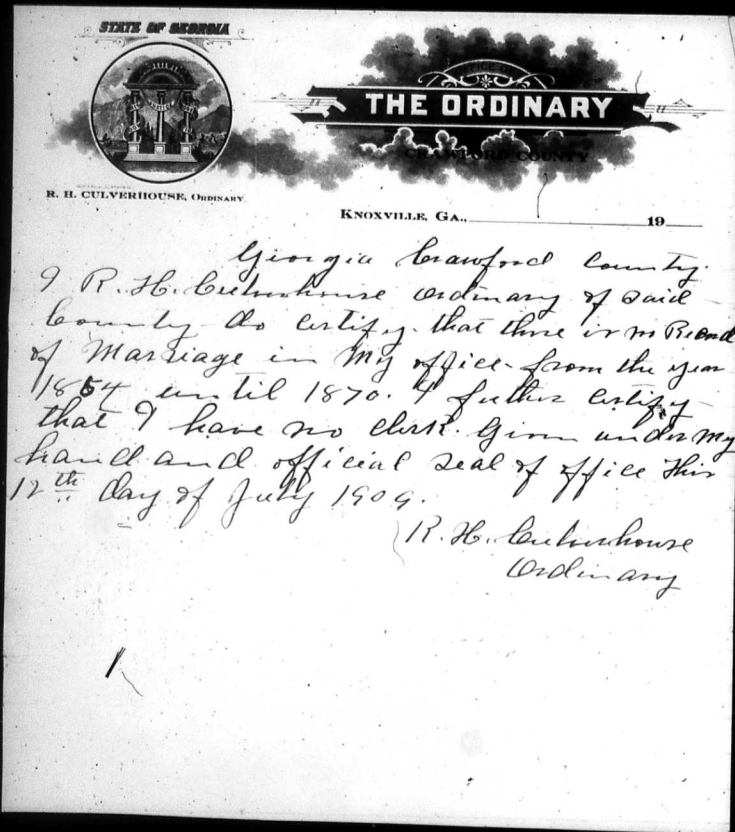 STATE OF GEORGIA
OFFICE OF
THE ORDINARY
CRAWFORD COUNTY
R. H. CULVERHOUSE, ORDINARY.
KNOXVILLE, GA., 19
Georgia Crawford County.
I R. H. Culverhouse Ordinary of said
County do certify that there is no Record
of Marriage in my office from the year
1854 until 1870. I futher certify
that I have no clerk. Given under my
hand and official seal of office this
12th day of July 1909.
R. H. Culverhouse
Ordinary